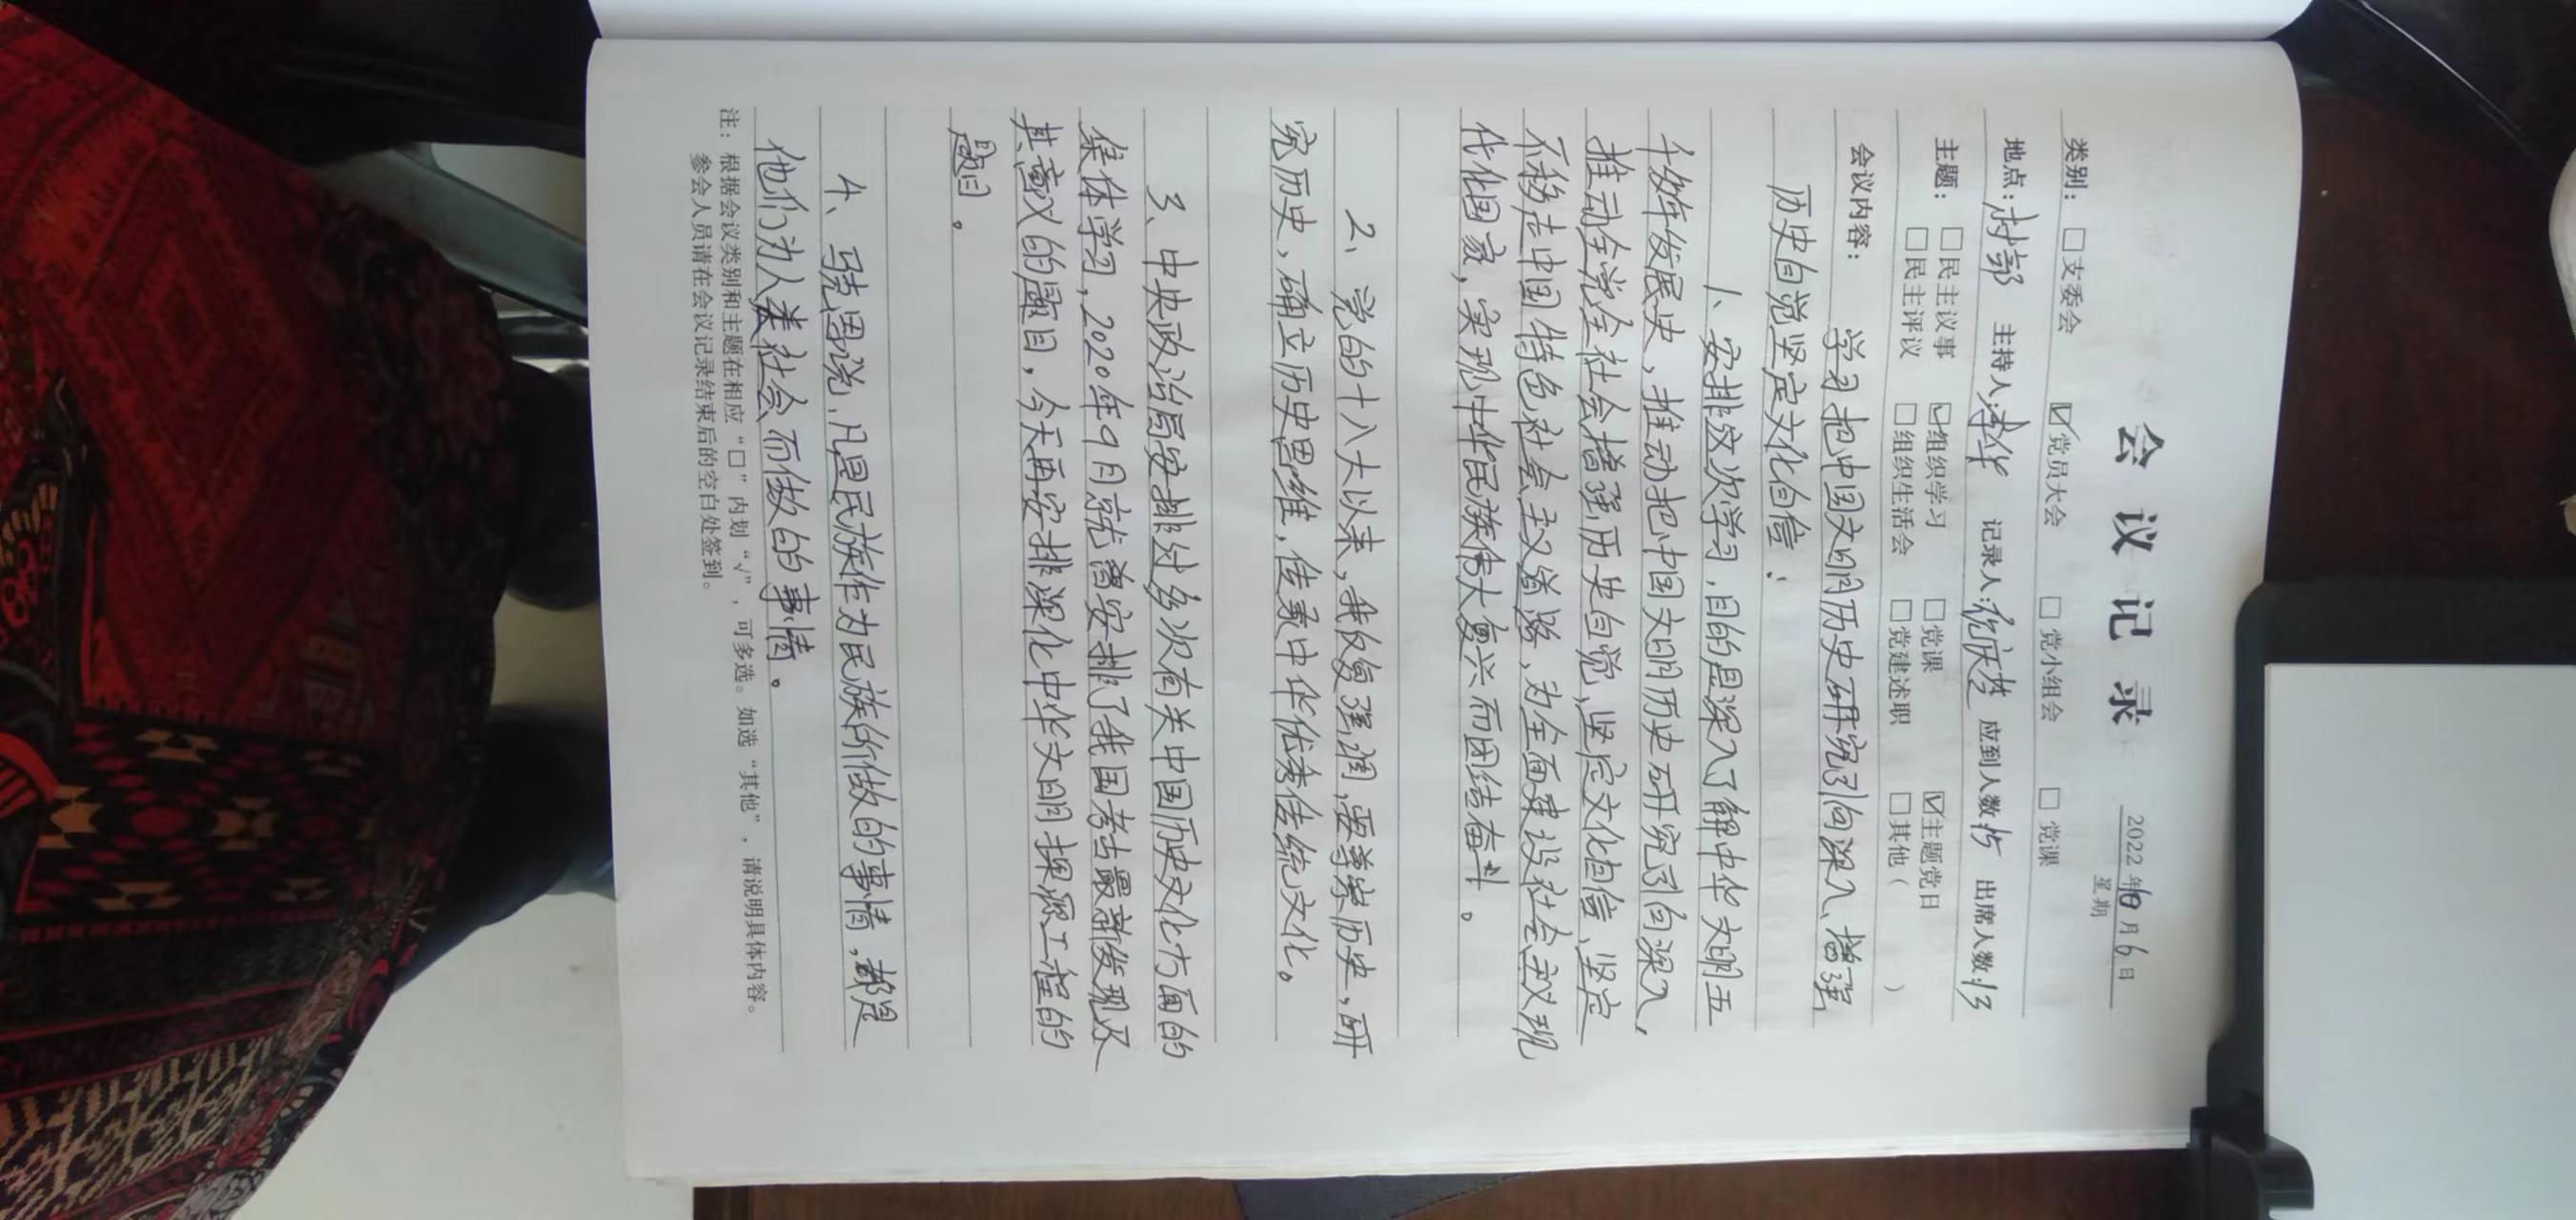 会议记录
2022年10月6日
星期
类别：□支委会 ☑党员大会 □党小组会 □党课
地点：村部 主持人： 记录人： 应到人数：15 出席人数：13
主题：□民主议事 ☑组织学习 □党课 ☑主题党日
□民主评议 □组织生活会 □党建述职 □其他（ ）
会议内容： 学习把中国文明历史研究引向深入、增强
历史自觉坚定文化自信：
1、安排这次学习，目的是深入了解中华文明五
千多年发展史，推动把中国文明历史研究引向深入，
推动全党全社会增强历史自觉、坚定文化自信、坚定
不移走中国特色社会主义道路，为全面建设社会主义现
代化国家，实现中华民族伟大复兴而团结奋斗。
2、党的十八大以来，我反复强调，要尊崇历史，研
究历史，确立历史思维，传承中华优秀传统文化。
3、中央政治局安排过多次有关中国历史文化方面的
集体学习，2020年9月就曾安排了我国考古最新发现及
其意义的题目，今天再安排深化中华文明探源工程的
题目。
4、马克思说、凡是民族作为民族所做的事情，都是
他们为人类社会而做的事情。
注：根据会议类别和主题在相应“□”内划“√”，可多选。如选“其他”，请说明具体内容。
参会人员请在会议记录结束后的空白处签到。